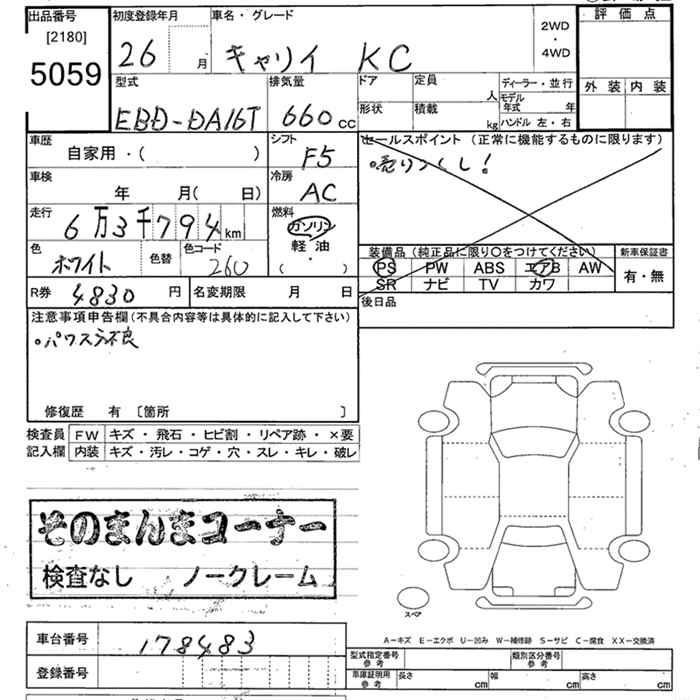 出品番号
[2180]
5059
初度登録年月
26 月
車名・グレード
キャリイ KC
2WD
・
4WD
評価点
外装 内装
型式
EBD-DA16T
排気量
660 cc
ドア
定員
人
形状
積載
kg
ディーラー・並行
モデル年式 年
ハンドル 左・右
車歴
自家用・( )
シフト
F5
車検
年 月( 日)
冷房
AC
走行
6万3千794km
燃料
ガソリン
軽油
( ・ )
色
ホワイト
色替
色コード
260
R券 4830 円
名変期限 月 日
セールスポイント (正常に機能するものに限ります)
。売りつくし!
装備品 (純正品に限り〇をつけてください)
PS PW ABS エアB AW
SR ナビ TV カワ
新車保証書
有・無
後日品
注意事項申告欄(不具合内容等は具体的に記入して下さい)
。パワステ不良
修復歴 有 〔箇所 〕
検査員記入欄
FW キズ・飛石・ヒビ割・リペア跡・×要
内装 キズ・汚レ・コゲ・穴・スレ・キレ・破レ
そのまんまコーナー
検査なし ノークレーム
スペア
A-キズ E-エクボ U-凹み W-補修跡 S-サビ C-腐食 XX-交換済
車台番号 178483
登録番号
型式指定番号参考
類別区分番号参考
車庫証明用参考
長さ cm
幅 cm
高さ cm